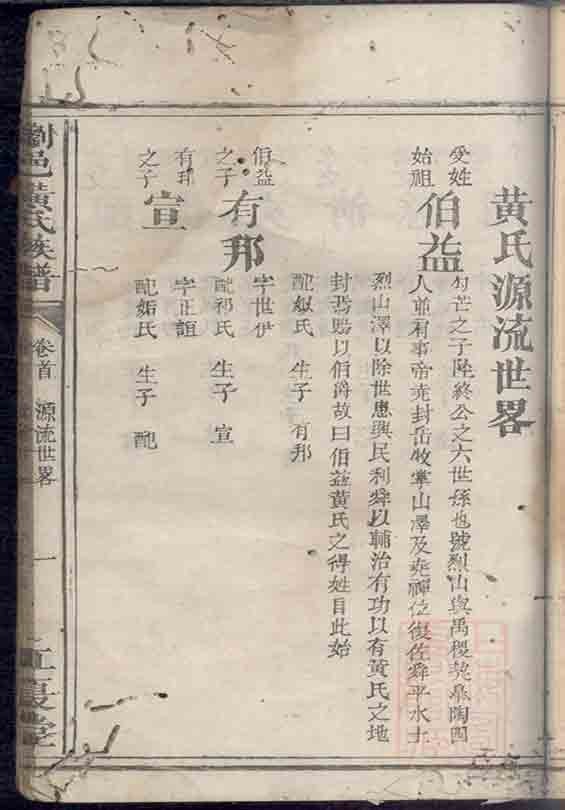 黃氏源流世畧
受姓始祖
伯益
勾芒之子陸終公之六世孫也號烈山與禹稷契皋陶四
人並有事帝堯封岳牧掌山澤及堯禪位復佐舜平水土
烈山澤以除世患興民利舜以輔治有功以有黃氏之地
封焉賜以伯爵故曰伯益黃氏之得姓自此始
配姒氏 生子 有邦
伯益之子
有邦
字世伊
配祁氏 生子 宣
有邦之子
宣
字正誼
配姤氏 生子 配
瀏邑黃氏族譜
卷首 源流世畧
一
江夏堂